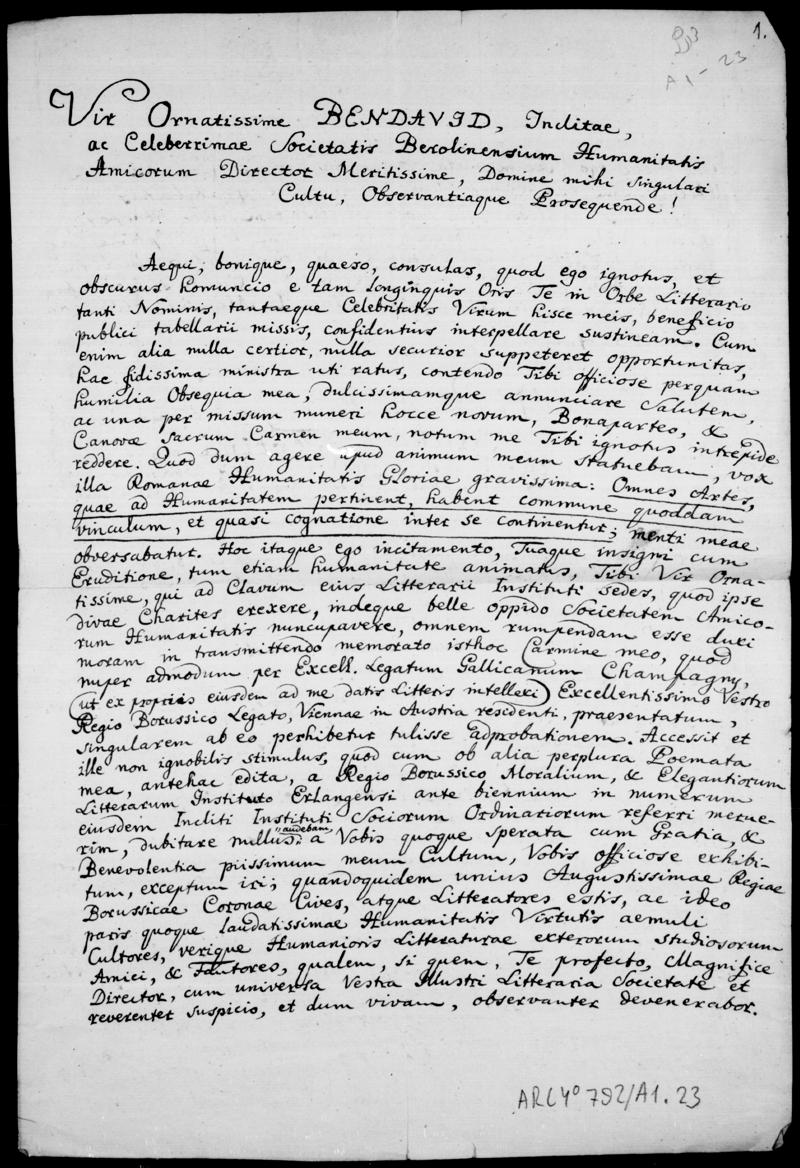 1.
93
A1 - 23
Vir Ornatissime BENDAVID, Inclitae,
ac Celeberrimae Societatis Berolinensium Humanitatis
Amicorum Director Meritissime, Domine mihi singulari
Cultu, Observantiaque Prosequende!
Aequi, bonique, quaeso, consulas, quod ego ignotus, et
obscurus homuncio e tam longinquis Oris Te in Orbe Litterario
tanti Nominis, tantaeque Celebritatis Virum hisce meis, beneficio
publici tabellarii missis, confidentius interpellare sustineam. Cum
enim alia nulla certior, nulla securior suppeteret opportunitas,
hac fidissima ministra uti ratus, contendo Tibi officiose perquam
humilia Obsequia mea, dulcissimamque annunciare Salutem,
ac una per missum muneri hocce novum, Bonaparteo, &
Canovae Sacrum Carmen meum, notum me Tibi ignotus intrepide
reddere. Quod dum agere apud animum meum statuebam, vox
illa Romanae Humanitatis Gloriae gravissima: Omnes Artes,
quae ad Humanitatem pertinent, habent commune quoddam
vinculum, et quasi cognatione inter se continentur; menti meae
obversabatur. Hoc itaque ego incitamento, Tuaque insigni cum
Eruditione, tum etiam humanitate animatus, Tibi Vir Orna-
tissime, qui ad Clavum eius Litterarii Instituti sedes, quod ipse
divae Charites erexere, indeque belle oppido Societatem Amico-
rum Humanitatis nuncupavere, omnem rumpendam esse duxi
moram in transmittendo memorato isthoc Carmine meo, quod
nuper admodum per Excell. Legatum Gallicanum Champagny,
(ut ex propriis eiusdem ad me datis Litteris intellexi) Excellentissimo Vestro
Regio Borussico Legato, Viennae in Austria residenti, praesentatum,
singularem ab eo perhibetur tulisse adprobationem. Accessit et
ille non ignobilis stimulus, quod cum ob alia perplura Poemata
mea, antehac edita, a Regio Borussico, Moralium, & Elegantiorum
Litterarum Instituto Erlangensi ante biennium in numerum
eiusdem Incliti Instituti Sociorum Ordinariorum referri merue-
rim, dubitare nullus audebam a Vobis quoque sperata cum Gratia, &
Benevolentia piissimum meum Cultum, Vobis officiose exhibi-
tum, exceptum iri; quandoquidem unius Augustissimae Regiae
Borussicae Coronae Cives, atque Litteratores estis, ac ideo
paris quoque laudatissimae Humanitatis Virtutis aemuli
Cultores, verique Humanioris Litteraturae exterorum studiosorum
Amici, & Fautores, qualem, si quem, Te profecto, Magnifice
Director, cum universa Vestra Illustri Litteraria Societate et
reverenter suspicio, et dum vivam, observanter devenerabor.
ARC 4° 792/A1. 23